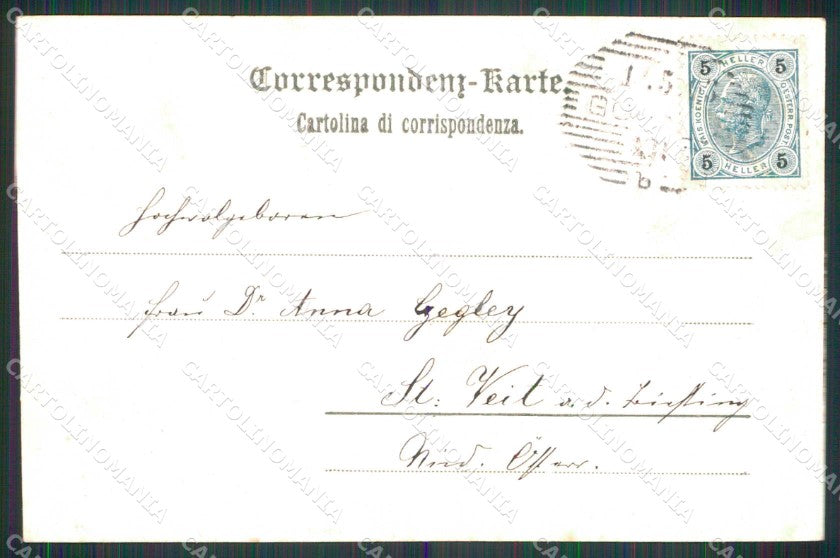 Correspondenz-Karte.
Cartolina di corrispondenza.
5 HELLER 5
KAIS. KOENIGL. OESTERR. POST.
5 HELLER 5
Hochwolgeboren
Frau Dr. Anna Gegley
St: Veit a. d. Triesting
Nied. Österr.
CARTOLINOMANIA